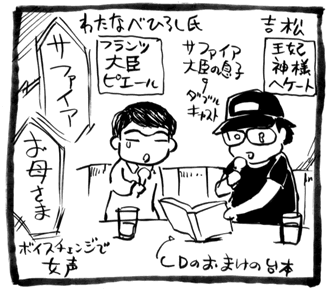 わたなべひろし氏
吉松
フランツ
大臣
ピエール
サファイア
大臣の息子
ダブル
キャスト
王妃
神様
ヘケート
サファイア
お母さま
ボイスチェンジで
女声
CDのおまけの台本